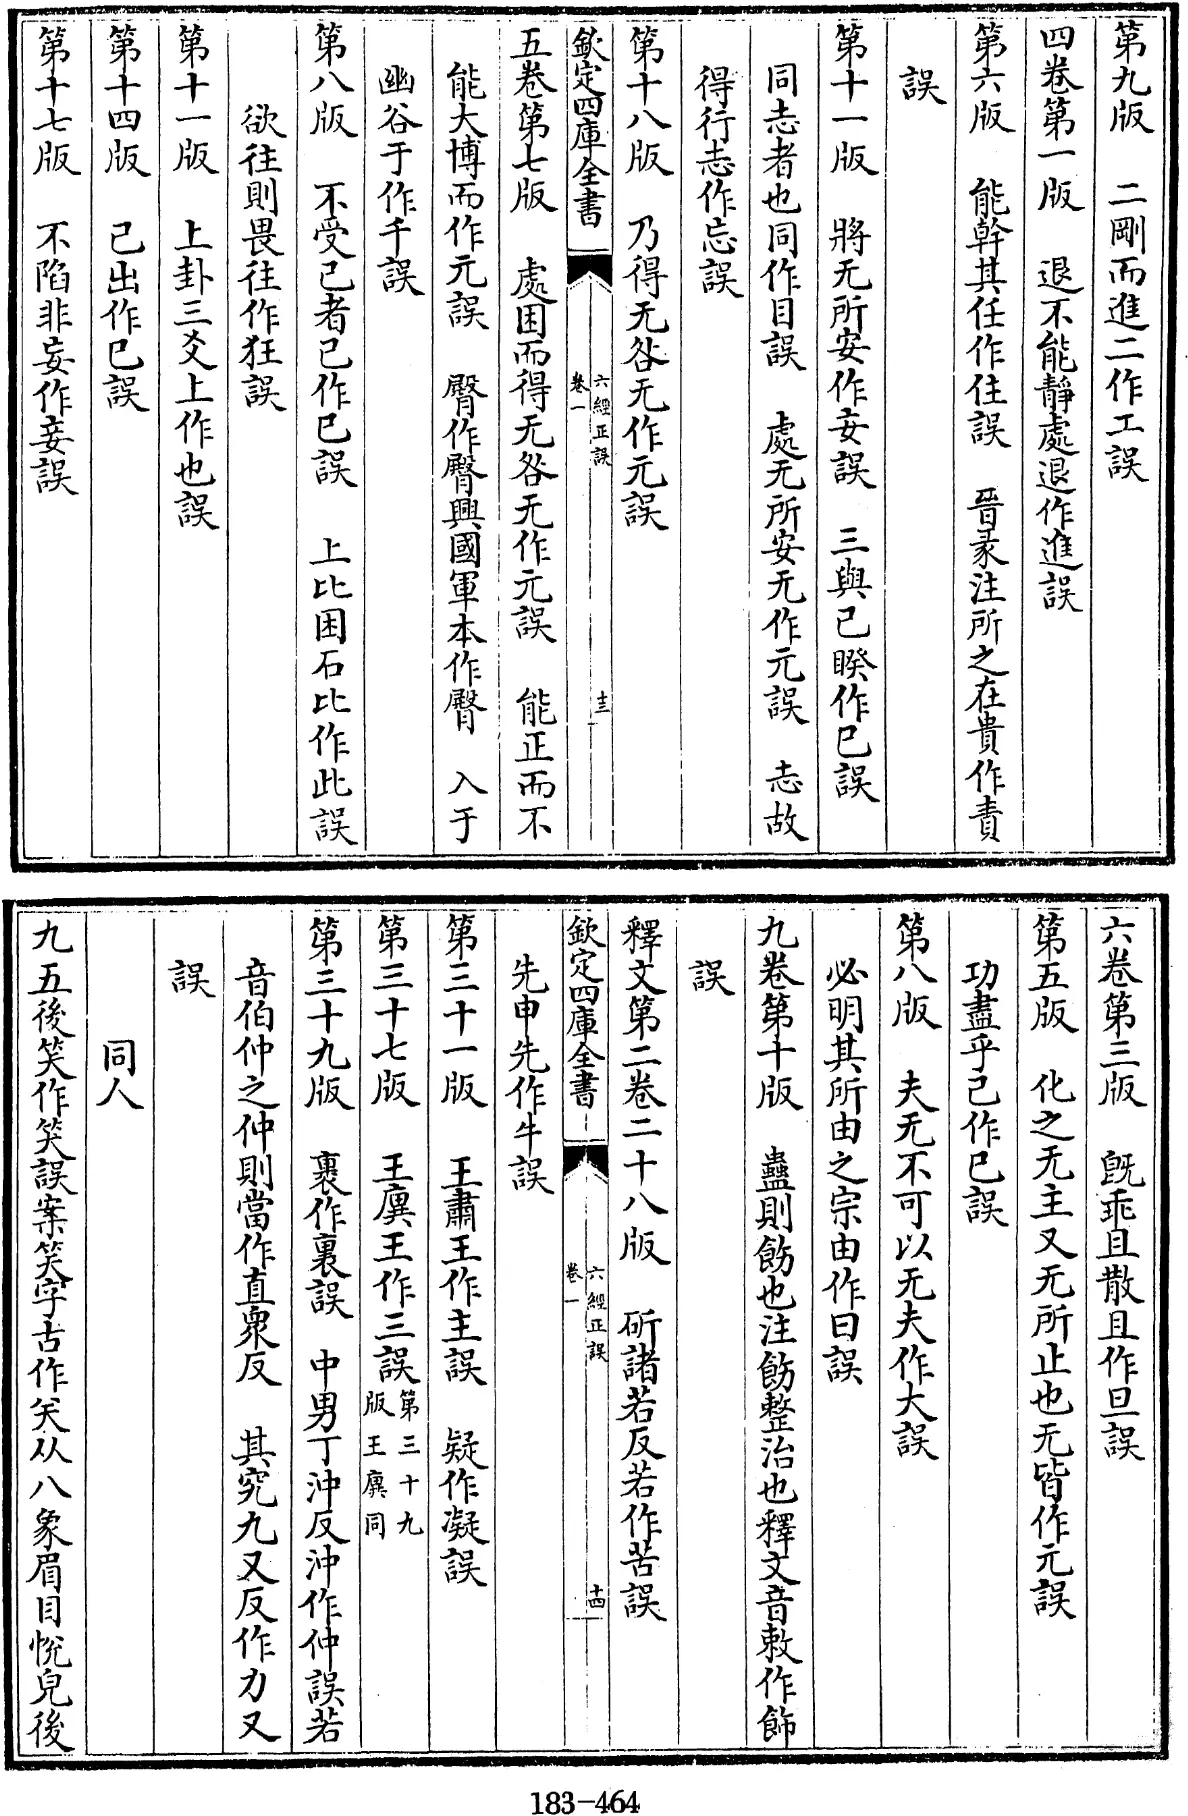 第九版　二剛而進二作工誤
四卷第一版　退不能靜處退作進誤
第六版　能幹其任作住誤　晉彖注所之在貴作責
誤
第十一版　將无所安作妄誤　三與己睽作巳誤
同志者也同作目誤　處无所安无作元誤　志故
得行志作忘誤
第十八版　乃得无咎无作元誤
欽定四庫全書
六經正誤
卷一
十三
五卷第七版　處困而得无咎无作元誤　能正而不
能大博而作元誤　臀作臋興國軍本作臀　入于
幽谷于作千誤
第八版　不受己者己作巳誤　上比困石比作此誤
欲往則畏往作狂誤
第十一版　上卦三爻上作也誤
第十四版　已出作巳誤
第十七版　不陷非妄作妾誤
六卷第三版　既乖且散且作旦誤
第五版　化之无主又无所止也无皆作元誤
功盡乎己作巳誤
第八版　夫无不可以无夫作大誤
必明其所由之宗由作曰誤
九卷第十版　蠱則飭也注飭整治也釋文音敕作飾
誤
釋文第二卷二十八版　斫諸若反若作苦誤
欽定四庫全書
六經正誤
卷一
十四
先申先作牛誤
第三十一版　王肅王作主誤　疑作凝誤
第三十七版　王廙王作三誤第三十九版王廙同
第三十九版　裏作裹誤　中男丁沖反沖作仲誤若
音伯仲之仲則當作直衆反　其究九又反作力又
誤
同人
九五後笑作笑誤案笑字古作𥬇从八象眉目悅皃後
183-464